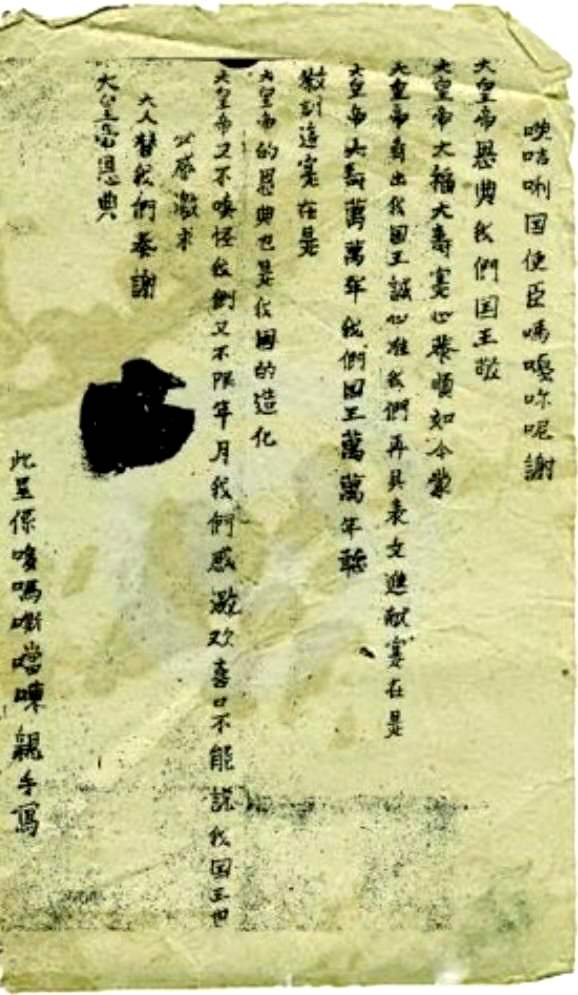 暎咭唎国使臣嗎嘎尔呢謝
大皇帝恩典我們国王敬
大皇帝大福大壽實心恭順如今蒙
大皇帝看出我国王誠心准我們再具表文進献實在是
大皇帝大壽萬萬年我們国王萬萬年聽
教訓這實在是
大皇帝的恩典也是我國的造化
大皇帝又不嗔怪我們又不限年月我們感激欢喜口不能說我国王也
必感激求
大人替我們奏謝
大皇帝恩典
此呈係哆嗎嘶噹㖦親手寫